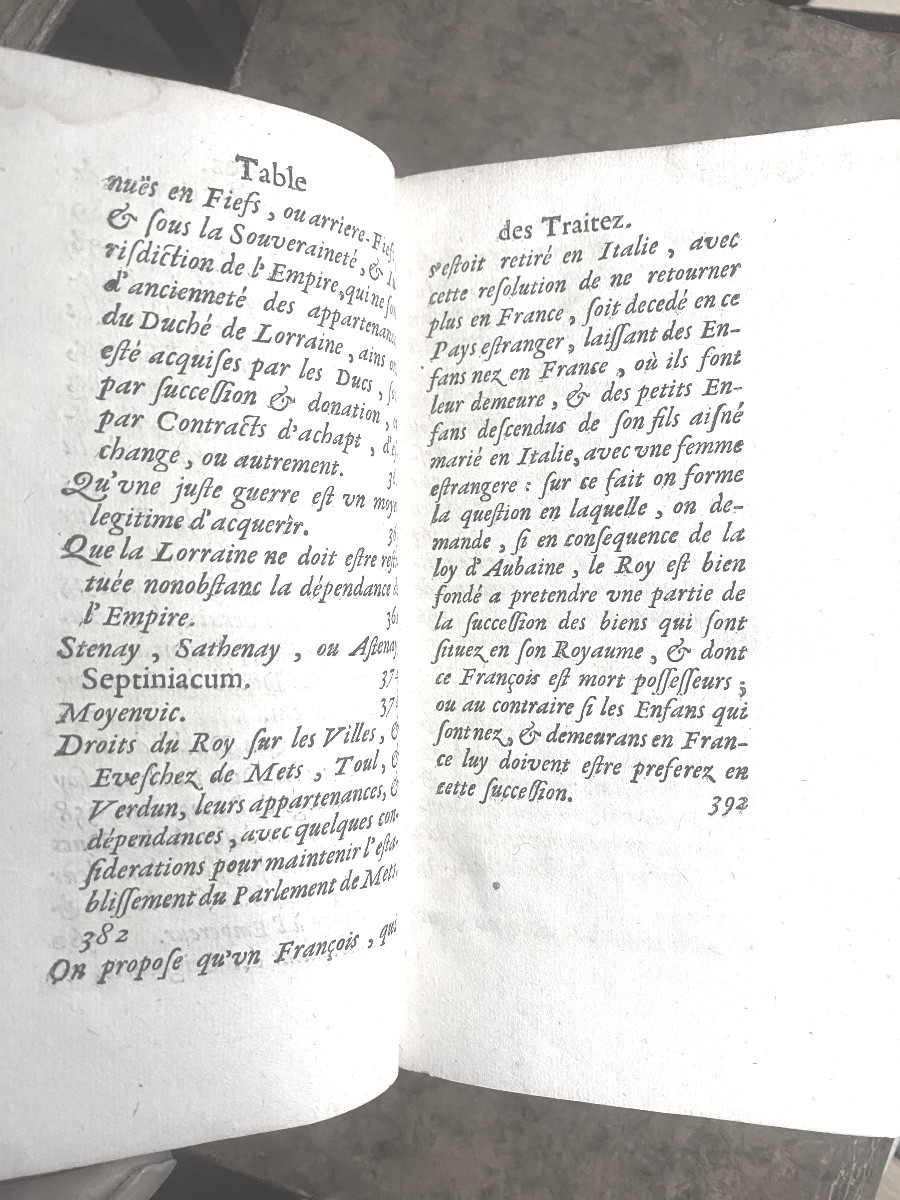 Table
nuës en Fiefs, ou arriere-Fiefs
& ſous la Souveraineté, &
riſdiction de l'Empire, qui ne
d'ancienneté des appartenanc
du Duché de Lorraine, ains
eſté acquiſes par les Ducs,
par ſucceſſion & donation,
par Contracts d'achapt, d'e
change, ou autrement.
Qu'vne juſte guerre eſt vn moye
legitime d'acquerir.
Que la Lorraine ne doit eſtre reſt
tuée nonobſtanc la dépendance
l'Empire. 36
Stenay, Sathenay, ou Aſtenay
Septiniacum. 37
Moyenvic. 37
Droits du Roy ſur les Villes, &
Eveſchez de Mets, Toul, &
Verdun, leurs appartenances, &
dépendances, avec quelques con-
ſiderations pour maintenir l'eſta-
bliſſement du Parlement de Mets.
382
On propoſe qu'vn François, qui
des Traitez.
s'eſtoit retiré en Italie, avec
cette reſolution de ne retourner
plus en France, ſoit decedé en ce
Pays eſtranger, laiſſant des En-
fans nez en France, où ils font
leur demeure, & des petits En-
fans deſcendus de ſon fils aiſné
marié en Italie, avec vne femme
eſtrangere : ſur ce fait on forme
la queſtion en laquelle, on de-
mande, ſi en conſequence de la
loy d'Aubaine, le Roy eſt bien
fondé a pretendre vne partie de
la ſucceſſion des biens qui ſont
ſituez en ſon Royaume, & dont
ce François eſt mort poſſeſſeurs ;
ou au contraire ſi les Enfans qui
ſont nez, & demeurans en Fran-
ce luy doivent eſtre preferez en
cette ſucceſſion. 392